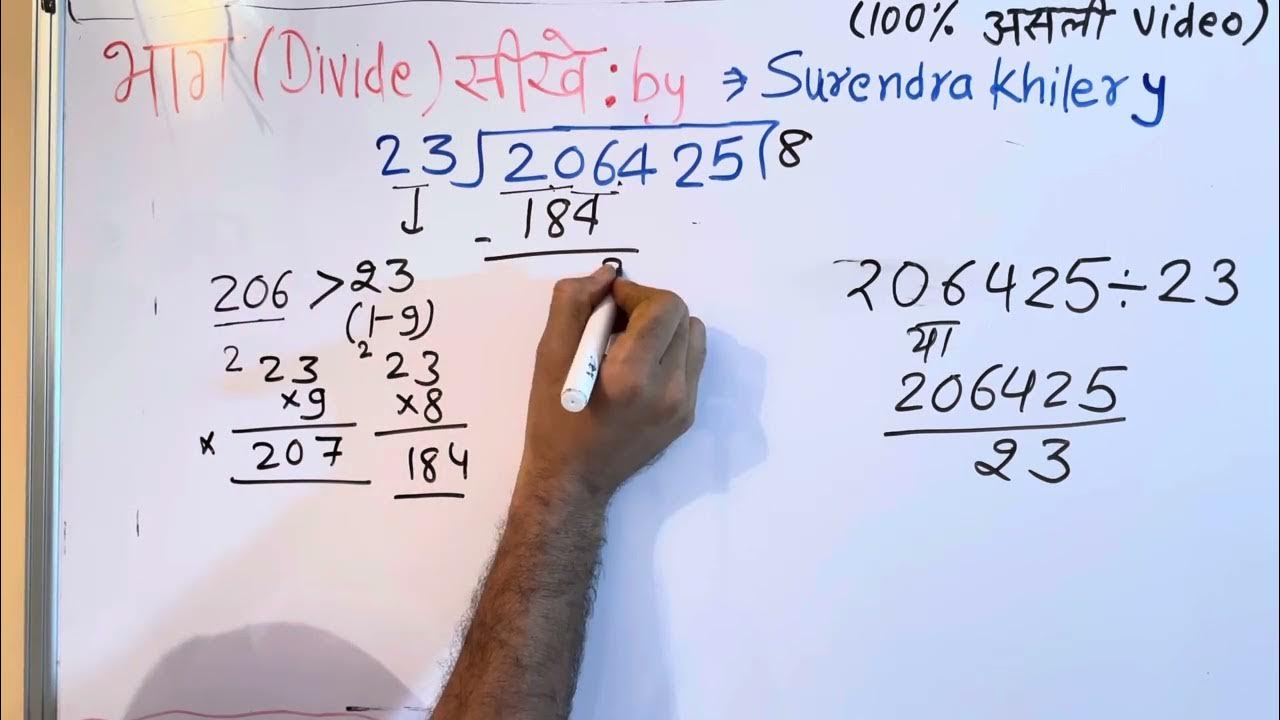 (100% असली video)
भाग (Divide) सीखे : by ⇒ Surendra Khilery
23 ) 206425 ( 8
- 184
206 > 23
(1-9)
2 23
×9
× 207
2 23
×8
184
206425 ÷ 23
या
206425
23